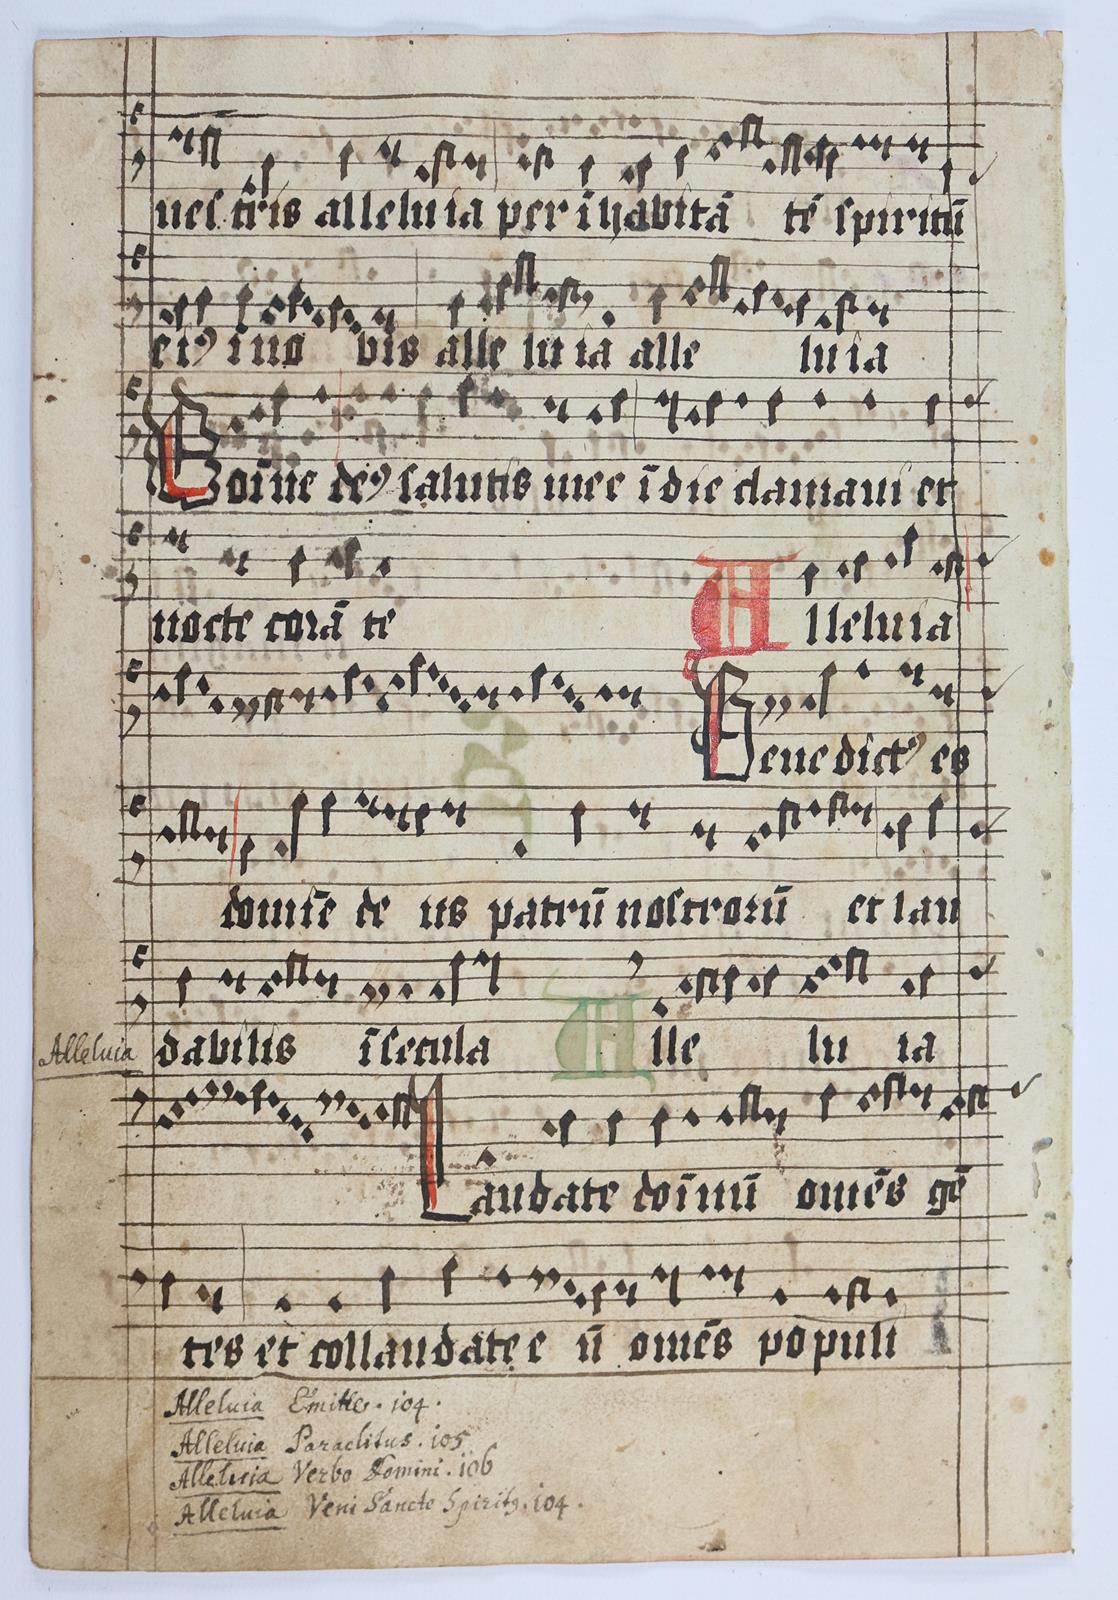 uestris alleluia per ihabitā tē spiritū
ei9 in uo bis alle lu ia alle lu ia
Doīne de9 salutis mee ī die clamaui et
nocte corā te Alleluia
Benedict9 es
domīe de us patrū nostrorū et lau
dabilis ī secula Alle lu ia
Alleluia
Laudate doīnū omēs gē
tes et collaudate e ū omēs populi
Alleluia Emitte. 104.
Alleluia Paraclitus. 105
Alleluia Verbo Domini. 106
Alleluia Veni Sancte Spirit9. 104.